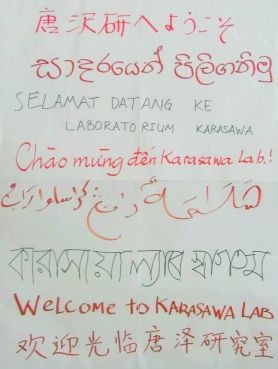 唐沢研へようこそ
සාදරයෙන් පිලිගනිමු
SELAMAT DATANG KE
LABORATORIUM KARASAWA
Chào mừng đến Karasawa Lab.!
কারাসায়া ল্যাবে স্বাগতম
WELCOME to KARASAWA LAB
欢迎光临唐泽研究室